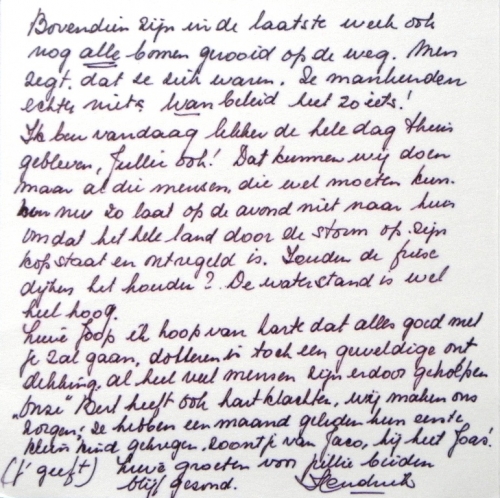 Bovendien zijn in de laatste week ook
nog alle bomen gerooid op de weg. Men
zegt dat ze ziek waren. Ze mankeerden
echter niets. Wanbeleid heet zoiets!
Ik ben vandaag lekker de hele dag thuis
gebleven, Jullie ook! Dat kunnen wij doen
maar al die mensen, die wel moeten kun-
nen nu zo laat op de avond niet naar huis
omdat het hele land door de storm op zijn
kop staat en ontregeld is. Zouden de friese
dijken het houden? De waterstand is wel
heel hoog.
Lieve Joop ik hoop van harte dat alles goed met
je zal gaan, dotteren is toch een geweldige ont
dekking, al heel veel mensen zijn erdoor geholpen
"Onze" Bert heeft ook hartklachten, wij maken ons
zorgen; ze hebben een maand geleden hun eerste
kleinkind gekregen, zoontje van Jaco, hij heet Joas!
(J' geeft) Lieve groeten voor jullie beiden
blijf gezond. Hendrik